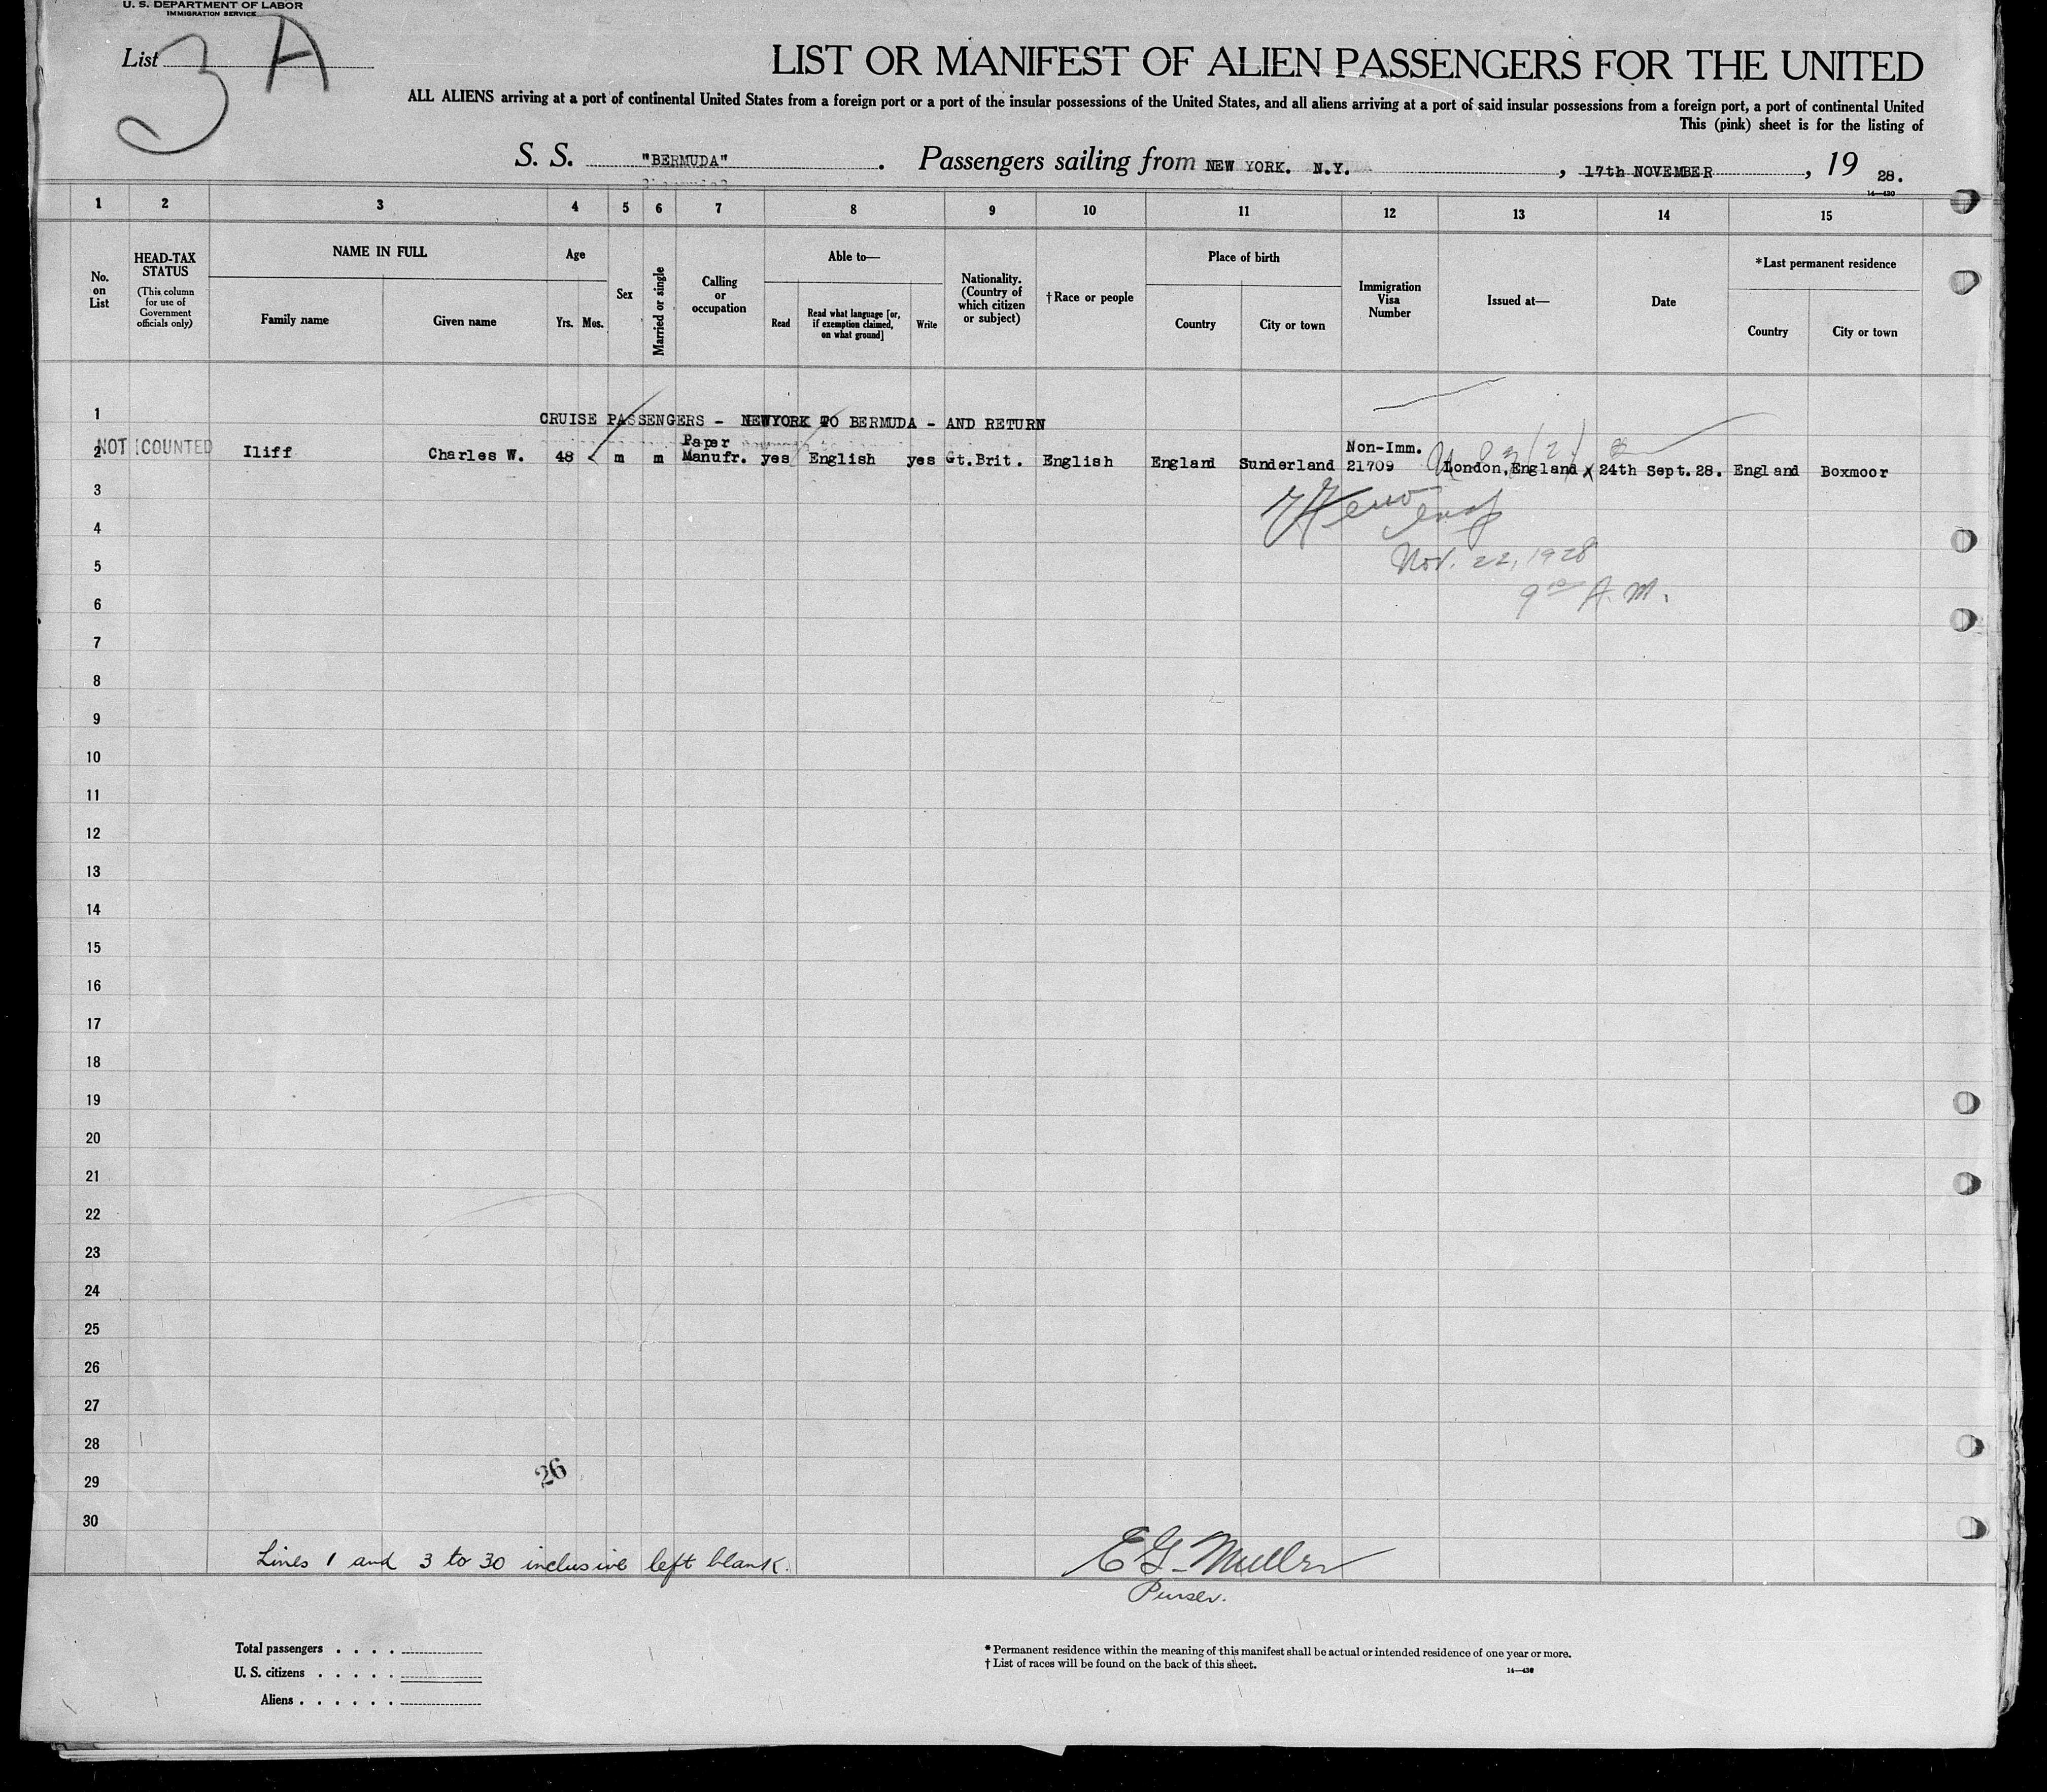 U. S. DEPARTMENT OF LABOR
IMMIGRATION SERVICE
List 3 A
LIST OR MANIFEST OF ALIEN PASSENGERS FOR THE UNITED
ALL ALIENS arriving at a port of continental United States from a foreign port or a port of the insular possessions of the United States, and all aliens arriving at a port of said insular possessions from a foreign port, a port of continental United
This (pink) sheet is for the listing of
S. S. "BERMUDA". Passengers sailing from NEW YORK. N.Y., 17th NOVEMBER, 19 28.
14—430
1 2 3 4 5 6 7 8 9 10 11 12 13 14 15
No. on List
HEAD-TAX STATUS
(This column for use of Government officials only)
NAME IN FULL
Family name Given name
Age
Yrs. Mos.
Sex
Married or single
Calling or occupation
Able to—
Read
Read what language [or, if exemption claimed, on what ground]
Write
Nationality. (Country of which citizen or subject)
†Race or people
Place of birth
Country City or town
Immigration Visa Number
Issued at—
Date
*Last permanent residence
Country City or town
1
CRUISE PASSENGERS - NEWYORK TO BERMUDA - AND RETURN
2 NOT COUNTED Iliff Charles W. 48 m m Paper Manufr. yes English yes Gt.Brit. English England Sunderland Non-Imm. 21709 London, England x 24th Sept. 28. England Boxmoor
3
4
Nov. 22, 1928
5
9 A. M.
6
7
8
9
10
11
12
13
14
15
16
17
18
19
20
21
22
23
24
25
26
27
28
26
29
30
Lines 1 and 3 to 30 inclusive left blank.
E G Muller
Purser.
Total passengers . . . .
U. S. citizens . . . . .
Aliens . . . . . .
* Permanent residence within the meaning of this manifest shall be actual or intended residence of one year or more.
† List of races will be found on the back of this sheet.
14—430